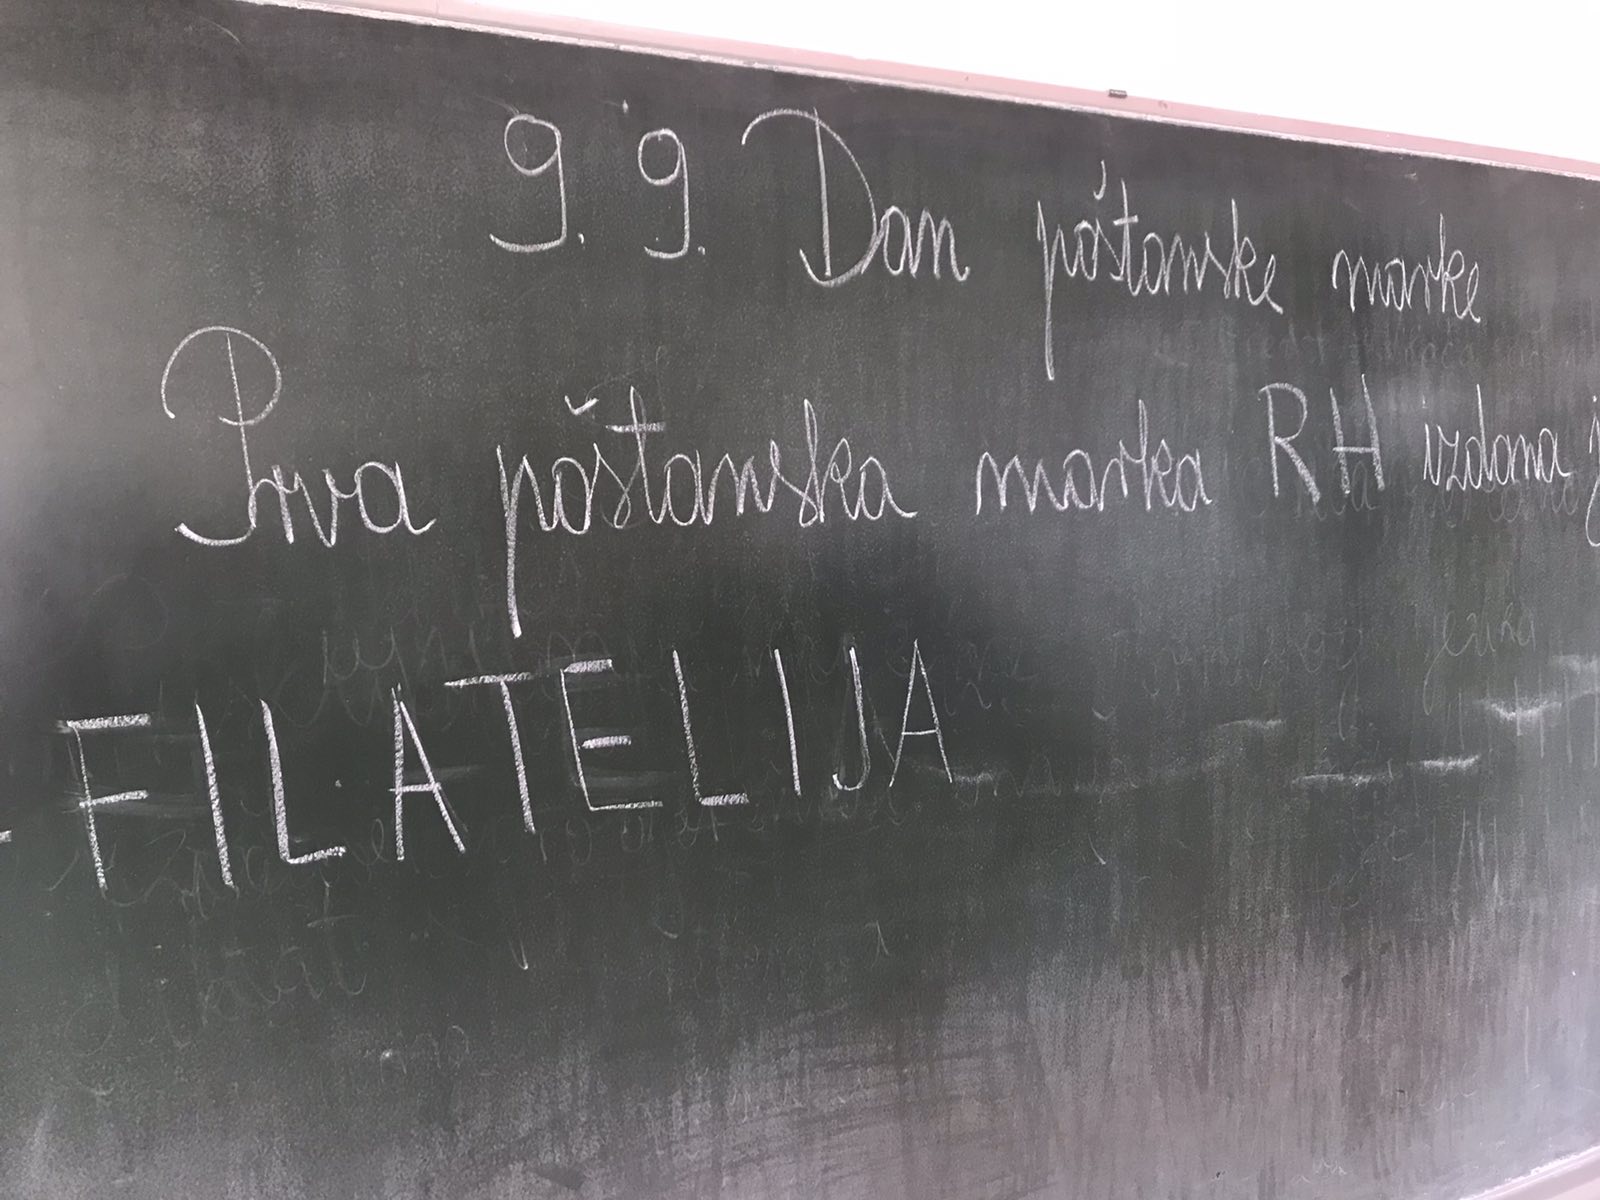 9. 9. Dan poštanske marke
Prva poštanska marka RH izdana j
- FILATELIJA